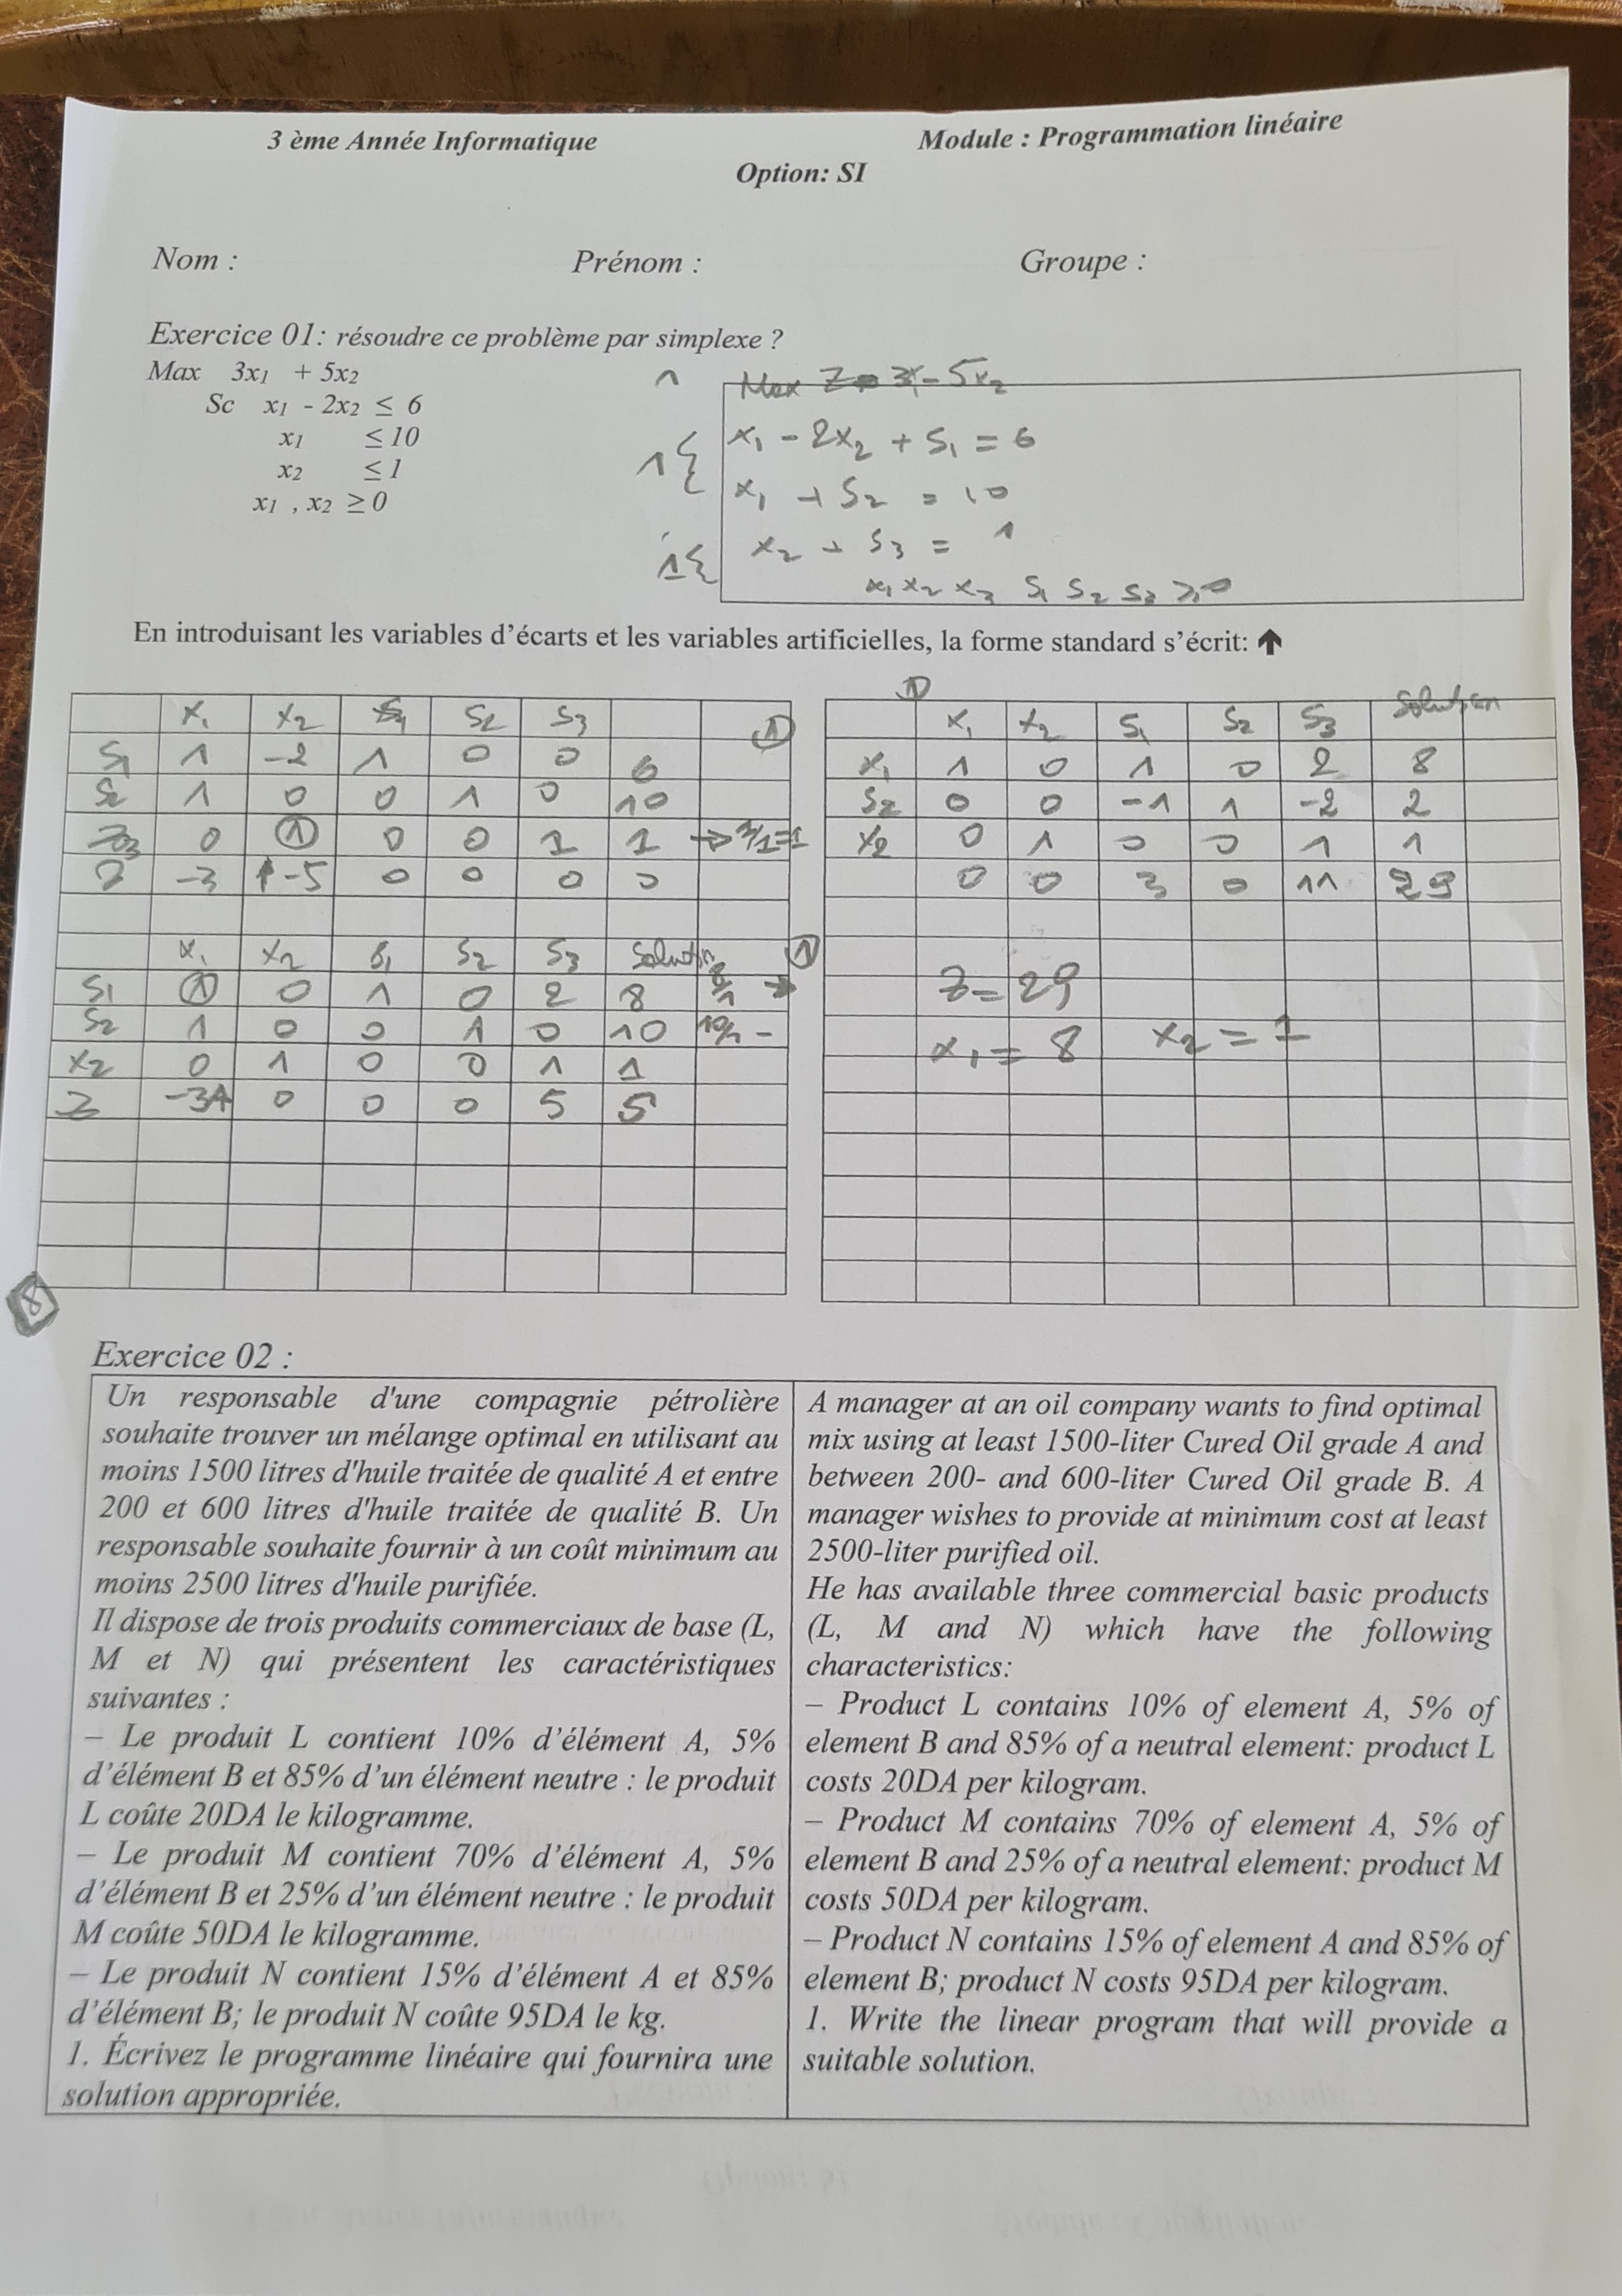 3 ème Année Informatique
Module : Programmation linéaire
Option: SI
Nom :
Prénom :
Groupe :
Exercice 01: résoudre ce problème par simplexe ?
Max 3x1 + 5x2
Sc x1 - 2x2 ≤ 6
x1 ≤ 10
x2 ≤ 1
x1 , x2 ≥ 0
1 Max Z 3x - 5x2
1{ x1 - 2x2 + S1 = 6
x1 + S2 = 10
1{ x2 + S3 = 1
x1 x2 x3 S1 S2 S3 ≥ 0
En introduisant les variables d'écarts et les variables artificielles, la forme standard s'écrit: ↑
x1 x2 S1 S2 S3
1
S1 1 -2 1 0 0 6
S2 1 0 0 1 0 10
0 1 0 0 1 1 → 1/1=1
Z -3 -5 0 0 0 0
x1 x2 S1 S2 S3 Solution
1
S1 1 0 1 0 2 8 8/1 →
S2 1 0 0 1 0 10 10/1 -
x2 0 1 0 0 1 1
Z -3 0 0 0 5 5
8
1
x1 x2 S1 S2 S3 Solution
x1 1 0 1 0 2 8
S2 0 0 -1 1 -2 2
x2 0 1 0 0 1 1
0 0 3 0 11 29
Z = 29
x1 = 8 x2 = 1
Exercice 02 :
Un responsable d'une compagnie pétrolière
souhaite trouver un mélange optimal en utilisant au
moins 1500 litres d'huile traitée de qualité A et entre
200 et 600 litres d'huile traitée de qualité B. Un
responsable souhaite fournir à un coût minimum au
moins 2500 litres d'huile purifiée.
Il dispose de trois produits commerciaux de base (L,
M et N) qui présentent les caractéristiques
suivantes :
– Le produit L contient 10% d'élément A, 5%
d'élément B et 85% d'un élément neutre : le produit
L coûte 20DA le kilogramme.
– Le produit M contient 70% d'élément A, 5%
d'élément B et 25% d'un élément neutre : le produit
M coûte 50DA le kilogramme.
– Le produit N contient 15% d'élément A et 85%
d'élément B; le produit N coûte 95DA le kg.
1. Écrivez le programme linéaire qui fournira une
solution appropriée.
A manager at an oil company wants to find optimal
mix using at least 1500-liter Cured Oil grade A and
between 200- and 600-liter Cured Oil grade B. A
manager wishes to provide at minimum cost at least
2500-liter purified oil.
He has available three commercial basic products
(L, M and N) which have the following
characteristics:
– Product L contains 10% of element A, 5% of
element B and 85% of a neutral element: product L
costs 20DA per kilogram.
– Product M contains 70% of element A, 5% of
element B and 25% of a neutral element: product M
costs 50DA per kilogram.
– Product N contains 15% of element A and 85% of
element B; product N costs 95DA per kilogram.
1. Write the linear program that will provide a
suitable solution.